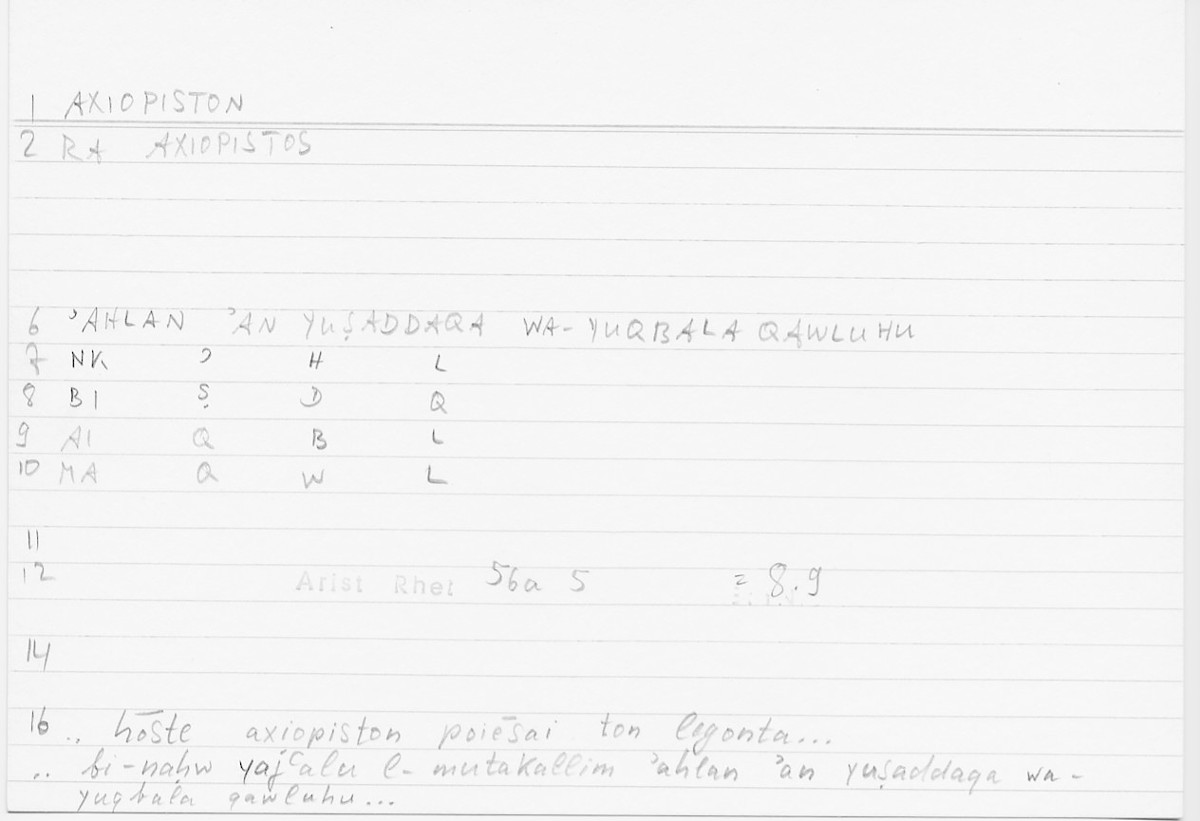 1 AXIOPISTON
2 RA AXIOPISTOS
6 ʾAHLAN ʾAN YUṢADDAQA WA-YUQBALA QAWLUHU
7 NK ʾ H L
8 BI Ṣ D Q
9 AI Q B L
10 MA Q W L
11
12 Arist Rhet 56a 5 = 8.9
14
16 .. hōste axiopiston poiēsai ton legonta...
.. bi-naḥw yajʿalu l-mutakallim ʾahlan ʾan yuṣaddaqa wa-
yuqbala qawluhu...